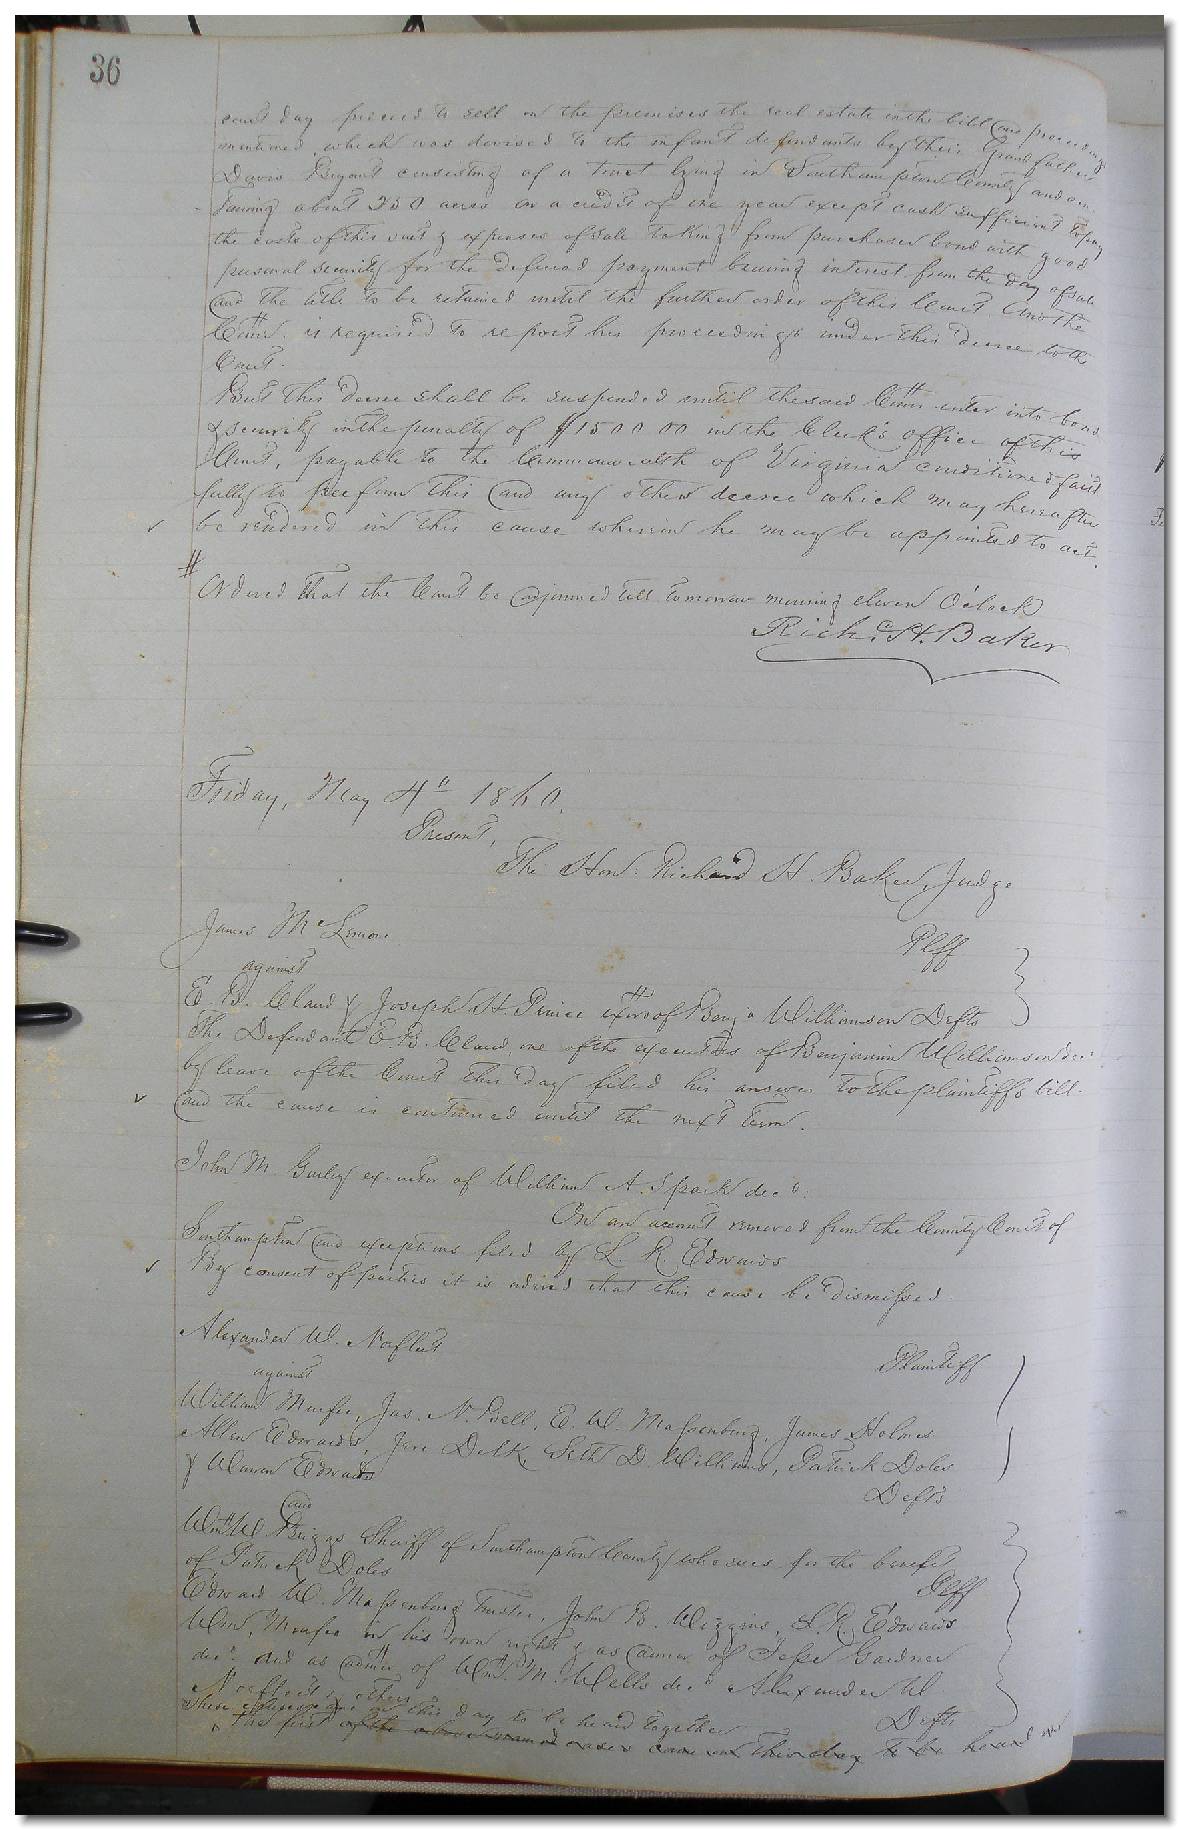 36
court day proceed to sell on the premises the real estate in the bill and proceedings
mentioned which was devised to the infant defendants by their Grandfather
Davis Bryant consisting of a tract lying in Southampton County and con-
taining about 250 acres on a credit of one year except cash sufficient to pay
the costs of this suit & expenses of sale taking from purchaser bond with good
personal security for the deferred payment bearing interest from the day of sale
and the title to be retained until the further order of this Court. And the
Comr. is required to report his proceedings under this decree to the
Court.
But this decree shall be suspended until the said Comr enter into bond
& security in the penalty of $1500 00 in the Clerk's office of this
Court, payable to the Commonwealth of Virginia conditioned faith
fully to perform this and any other decree which may hereafter
be rendered in this cause wherein he may be appointed to act.
Ordered that the Court be adjourned till tomorrow morning eleven O'clock
Richd. H. Baker
Friday, May 4th 1860.
Present,
The Hon: Richard H. Baker, Judge
James McLemore Plff
against
E. B. Claud & Joseph H. Prince exors of Benja Williamson Defts
The Defendant E. B. Claud, one of the executors of Benjamin Williamson decd
by leave of the Court this day filed his answer to the plaintiff's bill
and the cause is continued until the next term.
John M. Gurley executor of William A. Spark decd.
On an account removed from the County Court of
Southampton and exceptions filed by L. R. Edwards
By consent of parties it is ordered that this cause be dismissed
Alexander W. Norfleet Plaintiff
against
William Murfee, Jas. N. Bell, E. W. Massenburg, James Holmes
Allen Edwards, Jere Delk, Seth D. Williams, Patrick Doles
& Warren Edwards Defts
and
Wm W Briggs Sheriff of Southampton County who sues for the benefit
of Patrick Doles Plff
Edward W. Massenburg Trustee, John B. Wiggins, L. R. Edwards
Wm. Murfee in his own right & as admr of Jesse Gardner
decd. and as admr of Wm M. Wells decd Alexander W.
Norfleet & others Defts
These causes came on this day to be heard together
The first of the above named causes came on this day to be heard